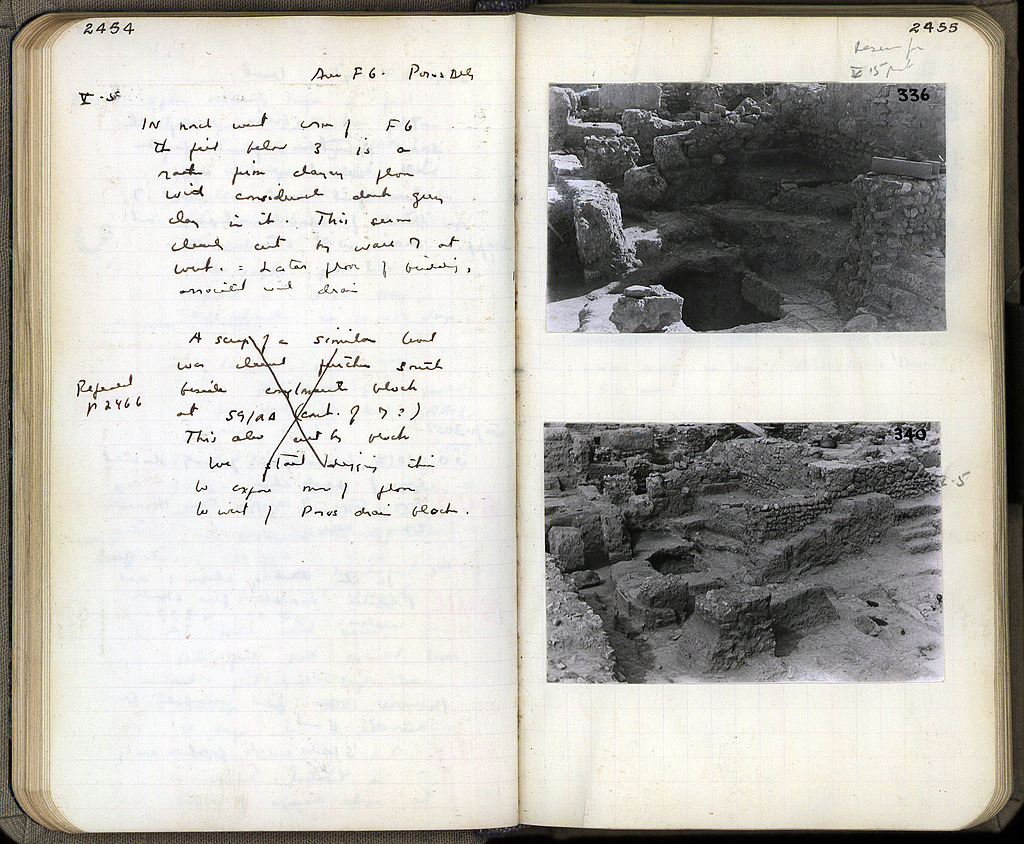 2454
Area FG. Poros Bldg
V-5
IN north west corner of FG
the first below 3 is a
rather firm clayey floor
with considerable dark grey
clay in it. This seems
clearly cut by wall 7 at
west. = Later floor of building,
associated with drain
A scrap of a similar level
was cleared further south
beside conglomerate block
at 59/AA (cont. of 7?)
This also cut by block
Repeated
p 2466
We start digging
to expose more of floor
to west of Poros drain block.
2455
336
340
V-5